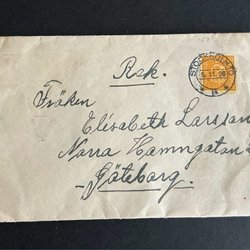 Rek.
STOCKHOLM
Fröken
Elisabeth Larsson
Norra Hamngatan
Göteborg.